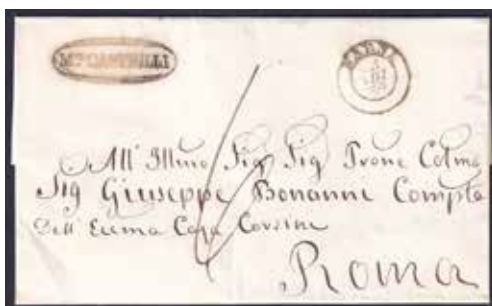 Mte CASTELLI
NARNI
All' Illmo Sig Sig Prone Colmo
Sig Giuseppe Bonanni Compta
Dell' Eccma Casa Corsini
Roma